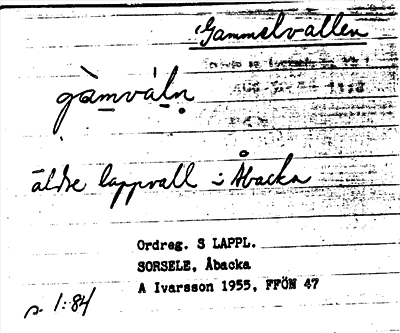 Gammelvallen
gàmváln
äldre lappvall i Åbacka
Ordreg. S LAPPL.
SORSELE, Åbacka
A Ivarsson 1955, FFÖN 47
s. 1:84